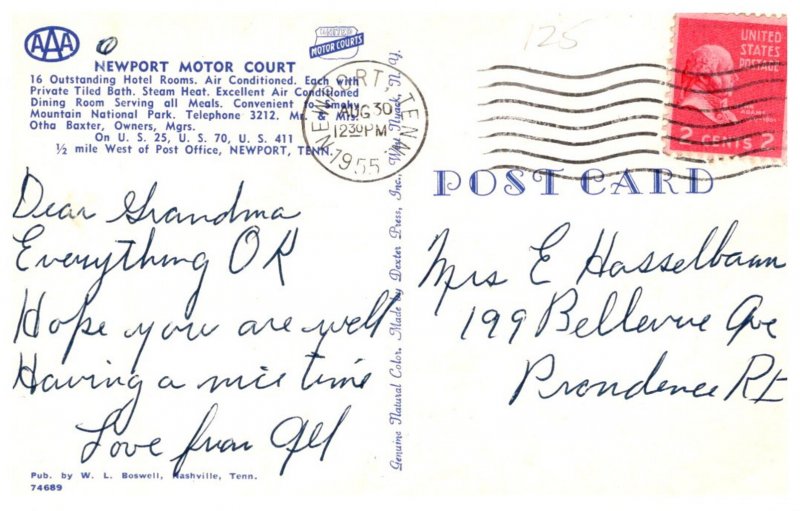 AAA
NEWPORT MOTOR COURT
16 Outstanding Hotel Rooms. Air Conditioned. Each with
Private Tiled Bath. Steam Heat. Excellent Air Conditioned
Dining Room Serving all Meals. Convenient to Smoky
Mountain National Park. Telephone 3212. Mr. & Mrs.
Otha Baxter, Owners, Mgrs.
On U. S. 25, U. S. 70, U. S. 411
½ mile West of Post Office, NEWPORT, TENN.
MOTOR COURTS
NEWPORT, TENN.
AUG 30
12 30 PM
1955
125
UNITED
STATES
POSTAGE
2 CENTS 2
POST CARD
Dear Grandma
Everything OK
Hope you are well
Having a nice time
Love from
Pub. by W. L. Boswell, Nashville, Tenn.
74689
Genuine Natural Color, Made by Dexter Press, Inc., West Nyack, N. Y.
Mrs E Hasselbaum
199 Bellevue Ave
Prondence RI